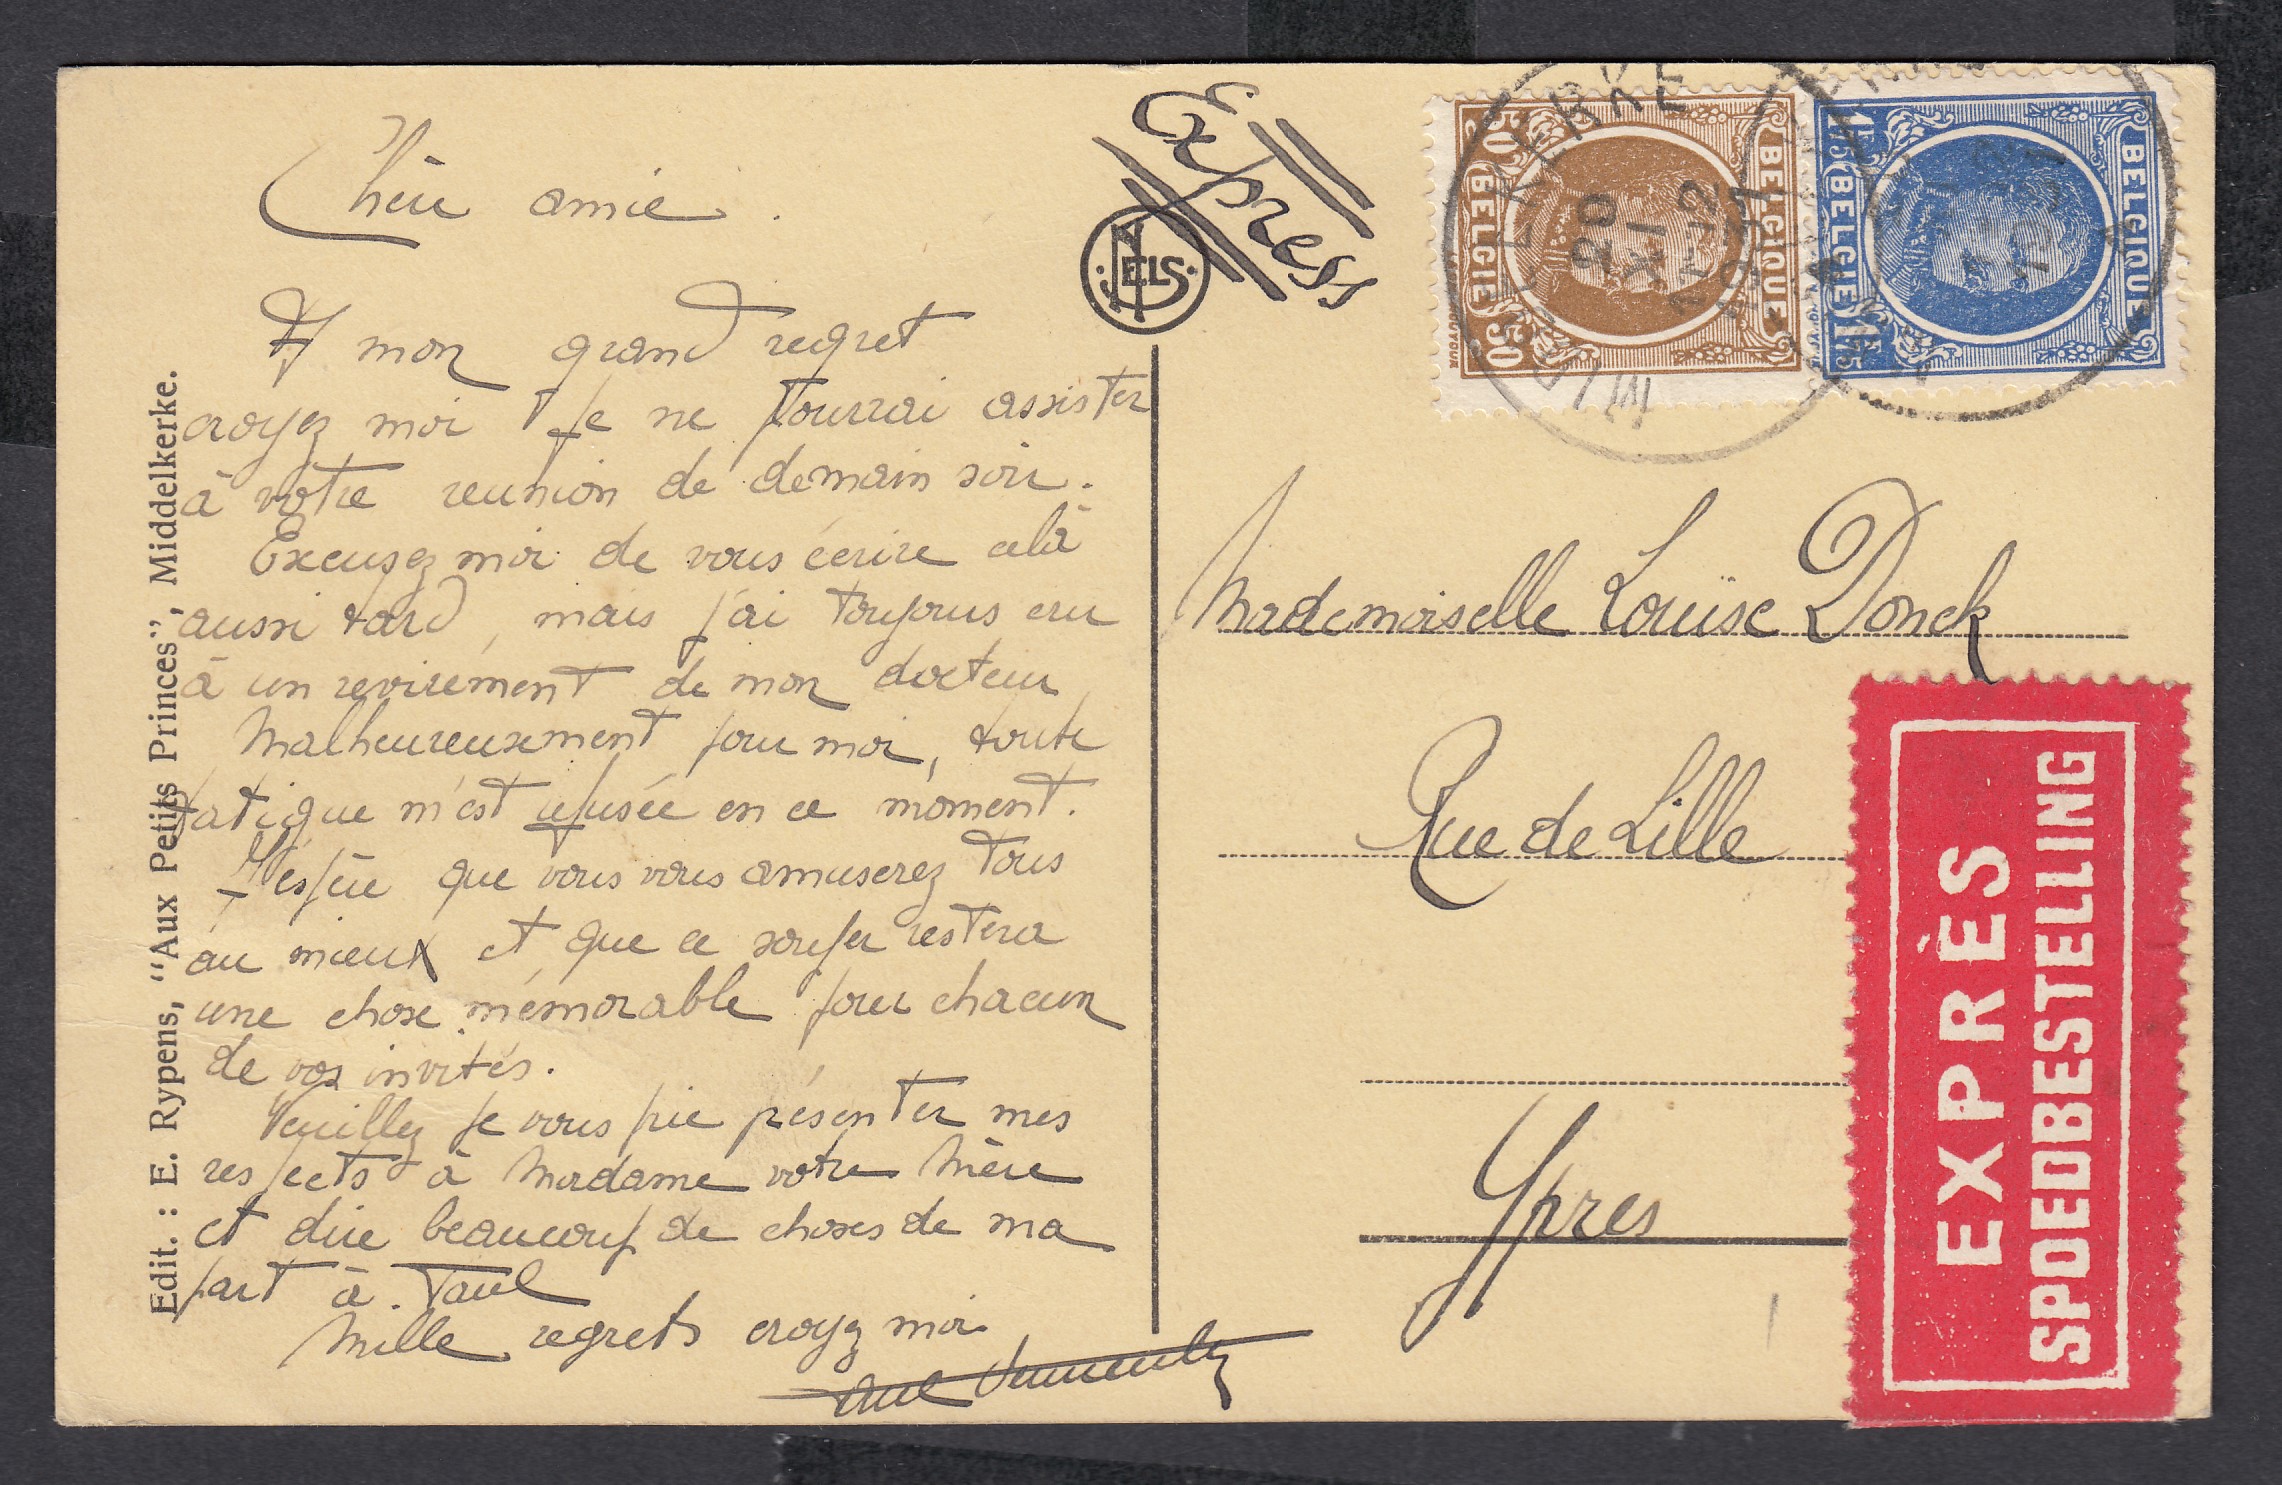 Chère amie.
A mon grand regret
croyez moi je ne pourrai assister
à votre reunion de demain soir.
Excusez moi de vous écrire celà
aussi tard, mais j'ai toujours cru
à un revirement de mon docteur
Malheureusement pour moi, toute
fatigue m'est refusée en ce moment.
J'espère que vous vous amuserez tous
au mieux et que ce souper restera
une chose mémorable pour chacun
de vos invités.
Veuillez je vous prie présenter mes
respects à Madame votre Mère
et dire beaucoup de choses de ma
part à Paul
Mille regrets croyez moi
Edit. : E. Rypens, "Aux Petits Princes", Middelkerke.
Express
NELS
50 BELGIQUE
BELGIE 50
1F75 BELGIQUE
BELGIE 1F75
MIDDELKERKE
20 XI
Mademoiselle Louïse Donck
Rue de Lille
Ypres
EXPRÈS
SPOEDBESTELLING